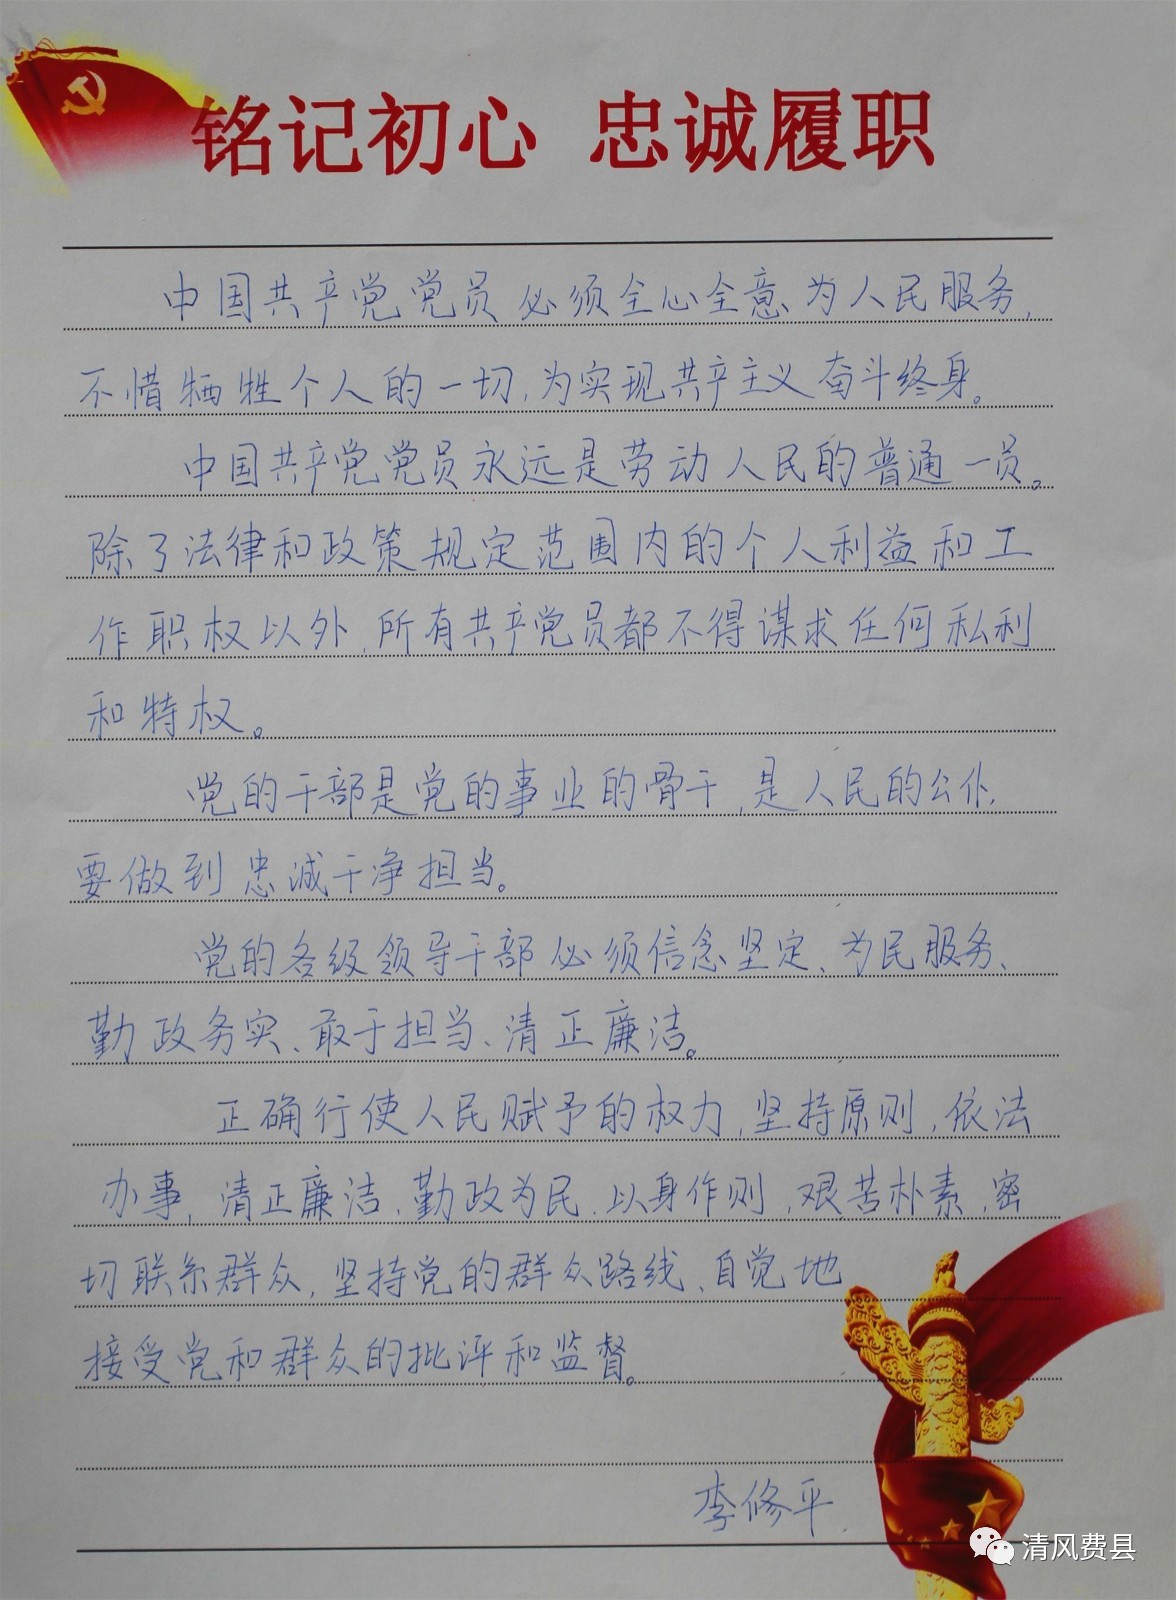 铭记初心 忠诚履职
中国共产党党员必须全心全意为人民服务,
不惜牺牲个人的一切,为实现共产主义奋斗终身。
中国共产党党员永远是劳动人民的普通一员。
除了法律和政策规定范围内的个人利益和工
作职权以外,所有共产党员都不得谋求任何私利
和特权。
党的干部是党的事业的骨干,是人民的公仆,
要做到忠诚干净担当。
党的各级领导干部必须信念坚定、为民服务、
勤政务实、敢于担当、清正廉洁。
正确行使人民赋予的权力,坚持原则,依法
办事,清正廉洁,勤政为民,以身作则,艰苦朴素,密
切联系群众,坚持党的群众路线,自觉地
接受党和群众的批评和监督。
李修平
清风费县